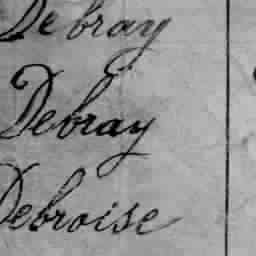 Debray
Debray
Debroise